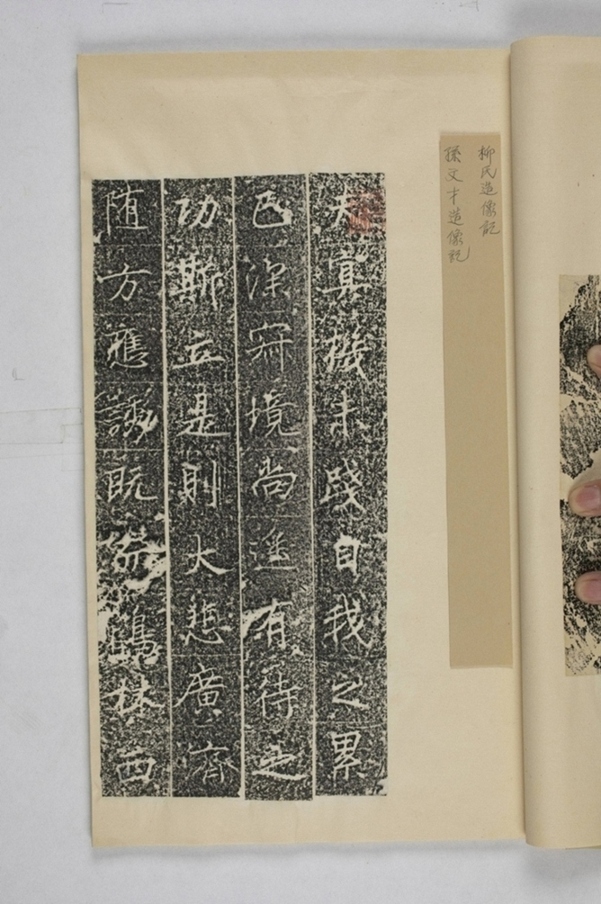 柳氏造像記
孫文才造像記
夫真機未踐自我之累
已深境尚遥有待之
功斯立是則大廣濟
随方應誘既鶴林西